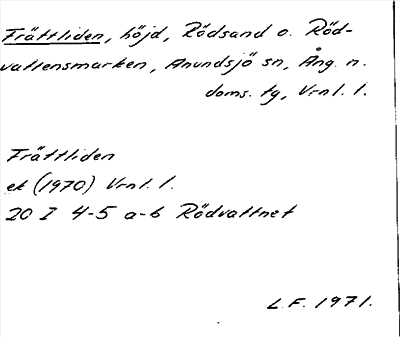 Frättliden, höjd, Rödsand o. Röd-
vattensmarken, Anundsjö sn, Ång. n.
doms. tg, Vrnl. l.
Frättliden
ek (1970) Vrnl. l.
20 I 4-5 a-b Rödvattnet
L.F. 1971.